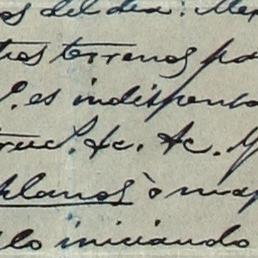 os del dia: Me
tros terrenos pa
es indispensa
truc. &c. &c.
planos ò map
llo iniciando